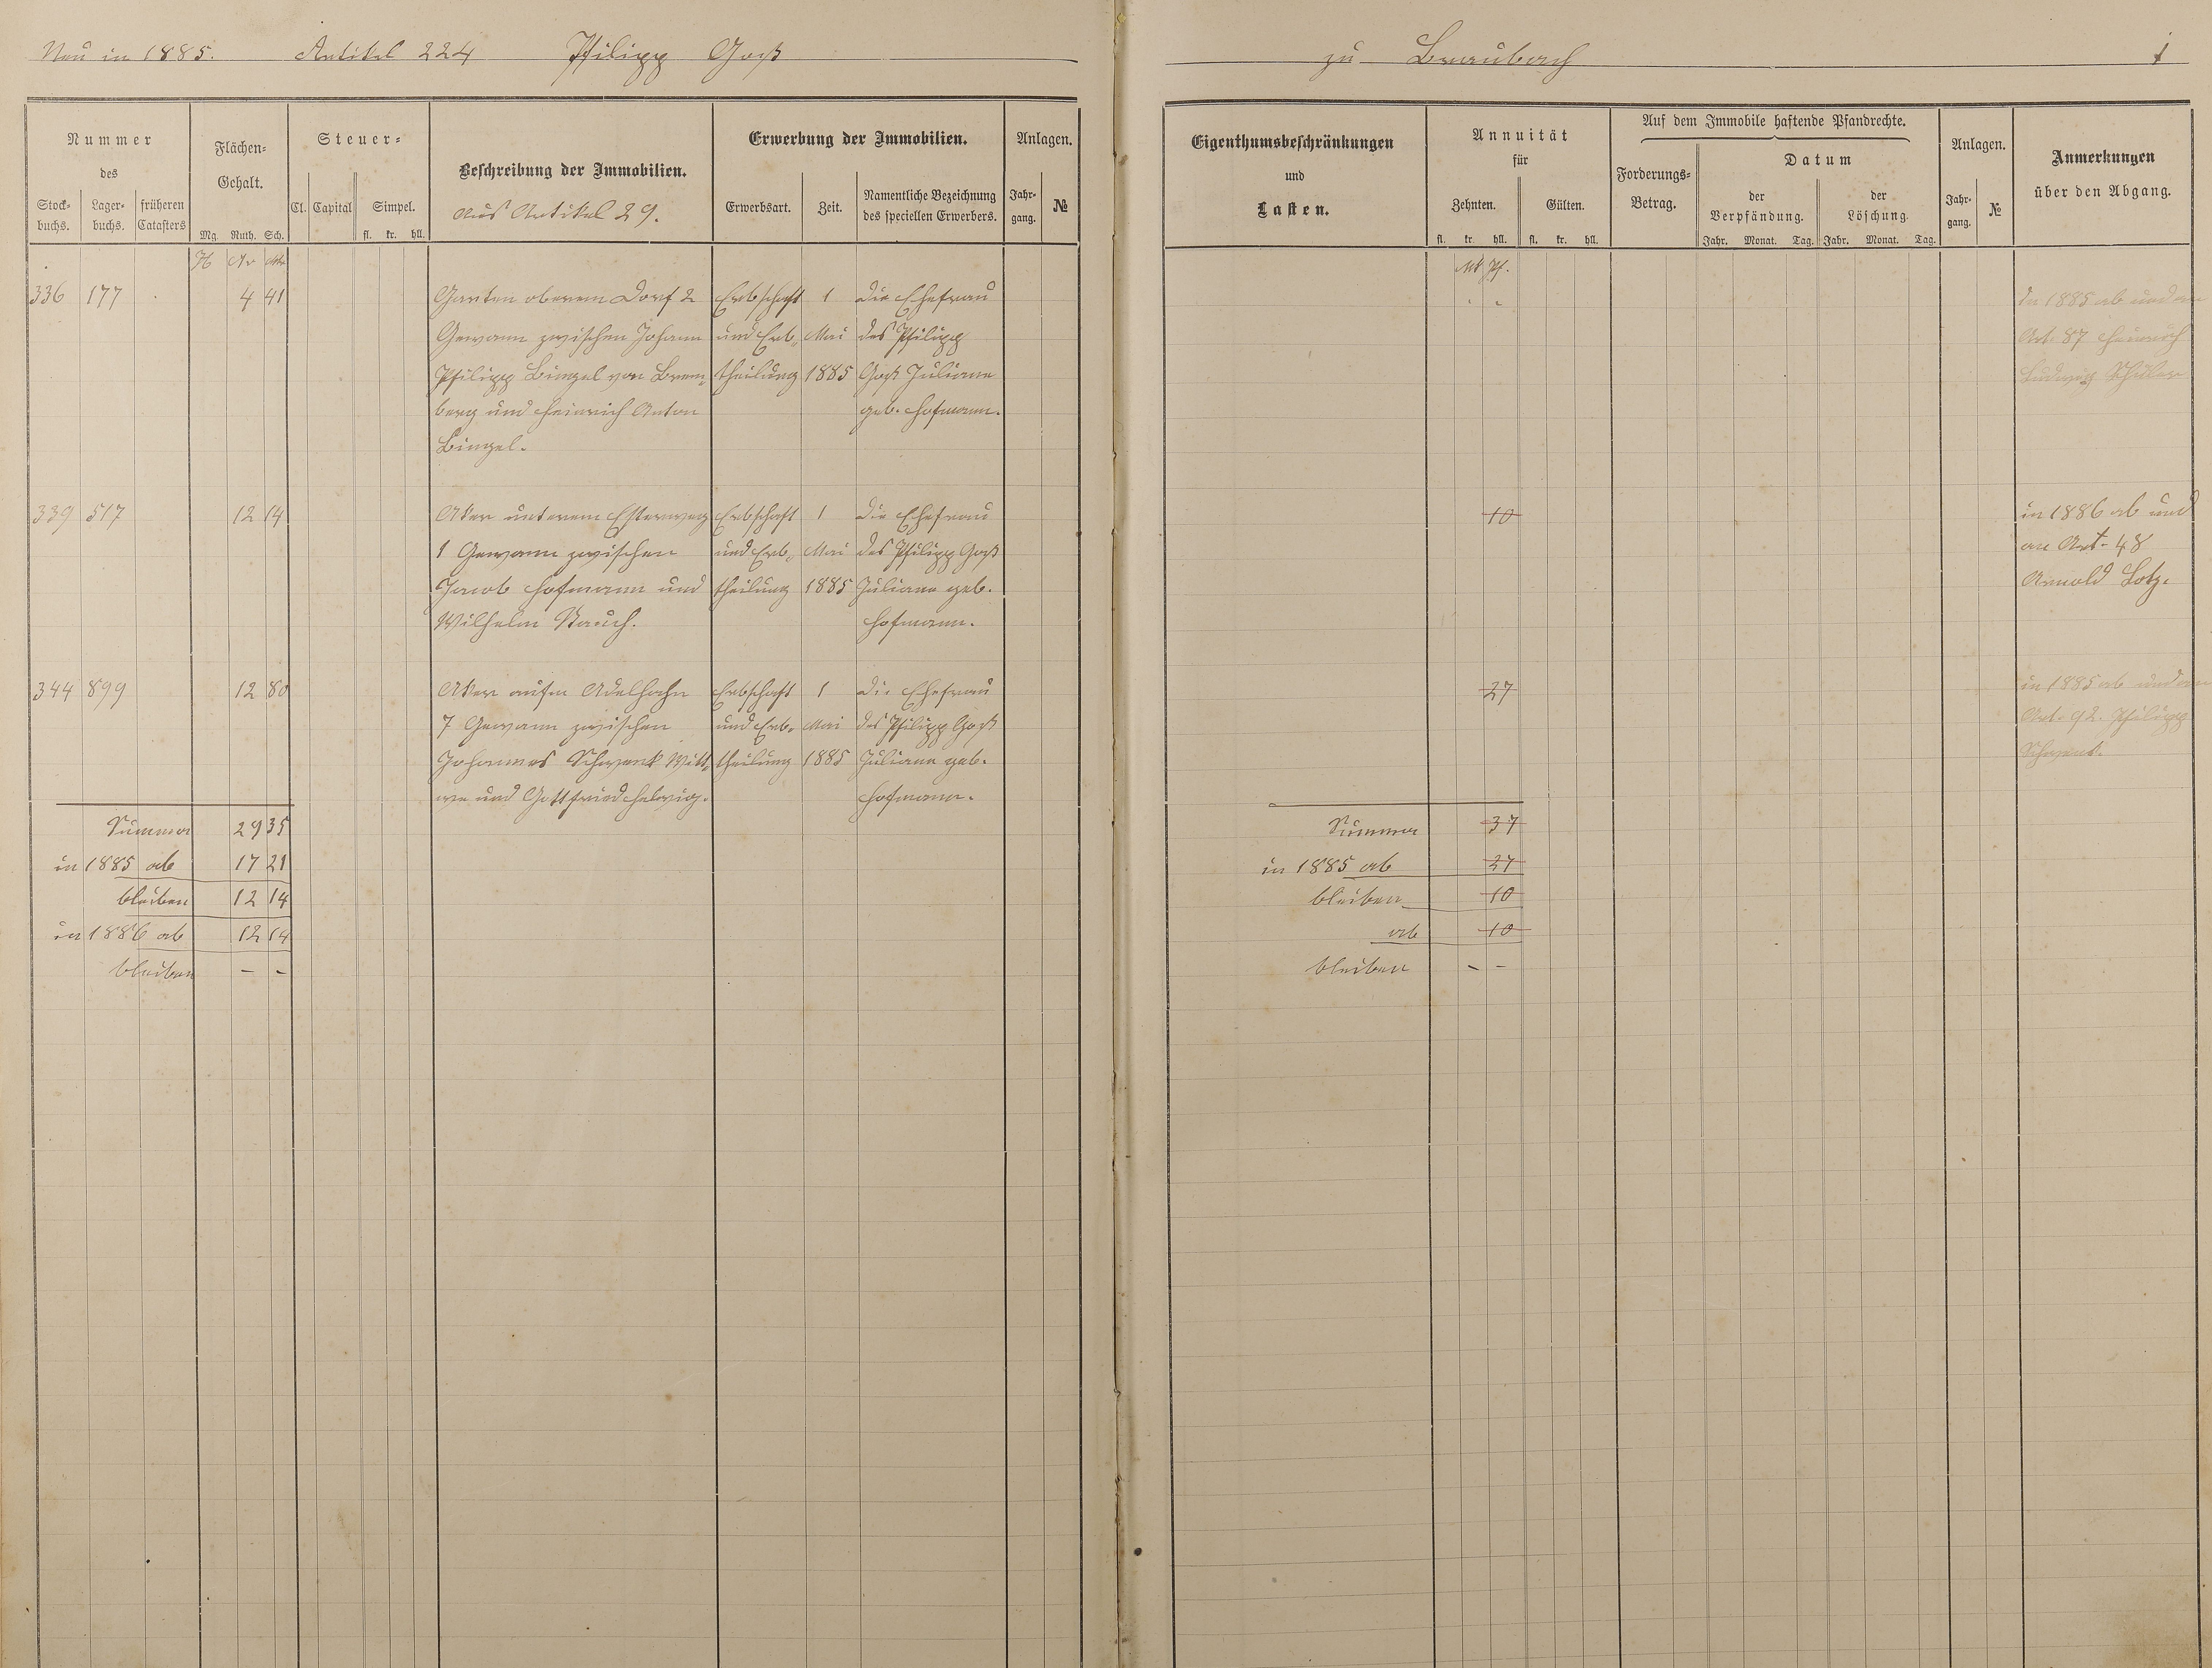 Neu in 1885. Artikel 224 Philipp Goß
zu Braubach 1
Nummer
des
Stock-
buchs.
Lager-
buchs.
früheren
Catasters
Flächen-
Gehalt.
Mg. Ruth. Sch.
Steuer-
Cl. Capital Simpel.
fl. kr. hll.
Beschreibung der Immobilien.
Aus Artikel 29.
Erwerbung der Immobilien.
Erwerbsart. Zeit.
Namentliche Bezeichnung
des speciellen Erwerbers.
Anlagen.
Jahr-
gang.
№
Eigenthumsbeschränkungen
und
Lasten.
Annuität
für
Zehnten. Gülten.
fl. kr. hll. fl. kr. hll.
Auf dem Immobile haftende Pfandrechte.
Forderungs-
Betrag.
Datum
der
Verpfändung.
der
Löschung.
Jahr. Monat. Tag. Jahr. Monat. Tag.
Anlagen.
Jahr-
gang.
№
Anmerkungen
über den Abgang.
H Ar Mtr
Mk Pf.
336 177 4 41 Garten oberem Dorf 2 Erbschaft 1 die Ehefrau In 1885 ab und an
Gewann zwischen Johann und Erb- Mai des Philipp Art. 87 Heinrich
Philipp Bingel von Brem- theilung 1885 Goß Juliane Ludwig Schüler
berg und Heinrich Anton geb. Hofmann.
Bingel.
339 517 12 14 Aker unterem Esterweg Erbschaft 1 die Ehefrau 10 in 1886 ab und
1 Gewann zwischen und Erb- Mai des Philipp Goß an Art. 48
Jacob Hofmann und theilung 1885 Juliane geb. Arnold Lotz.
Wilhelm Rauch. Hofmann.
344 899 12 80 Aker aufm Adelhahn Erbschaft 1 die Ehefrau 27 in 1885 ab und an
7 Gewann zwischen und Erb- Mai des Philipp Goß Art. 92. Philipp
Johannes Schwenk Witt- theilung 1885 Juliane geb. Schwenk.
we und Gottfried Helwig. Hofmann.
Summa 29 35 Summa 37
in 1885 ab 17 21 in 1885 ab 27
bleiben 12 14 bleiben 10
in 1886 ab 12 14 ab 10
bleiben – – bleiben – –